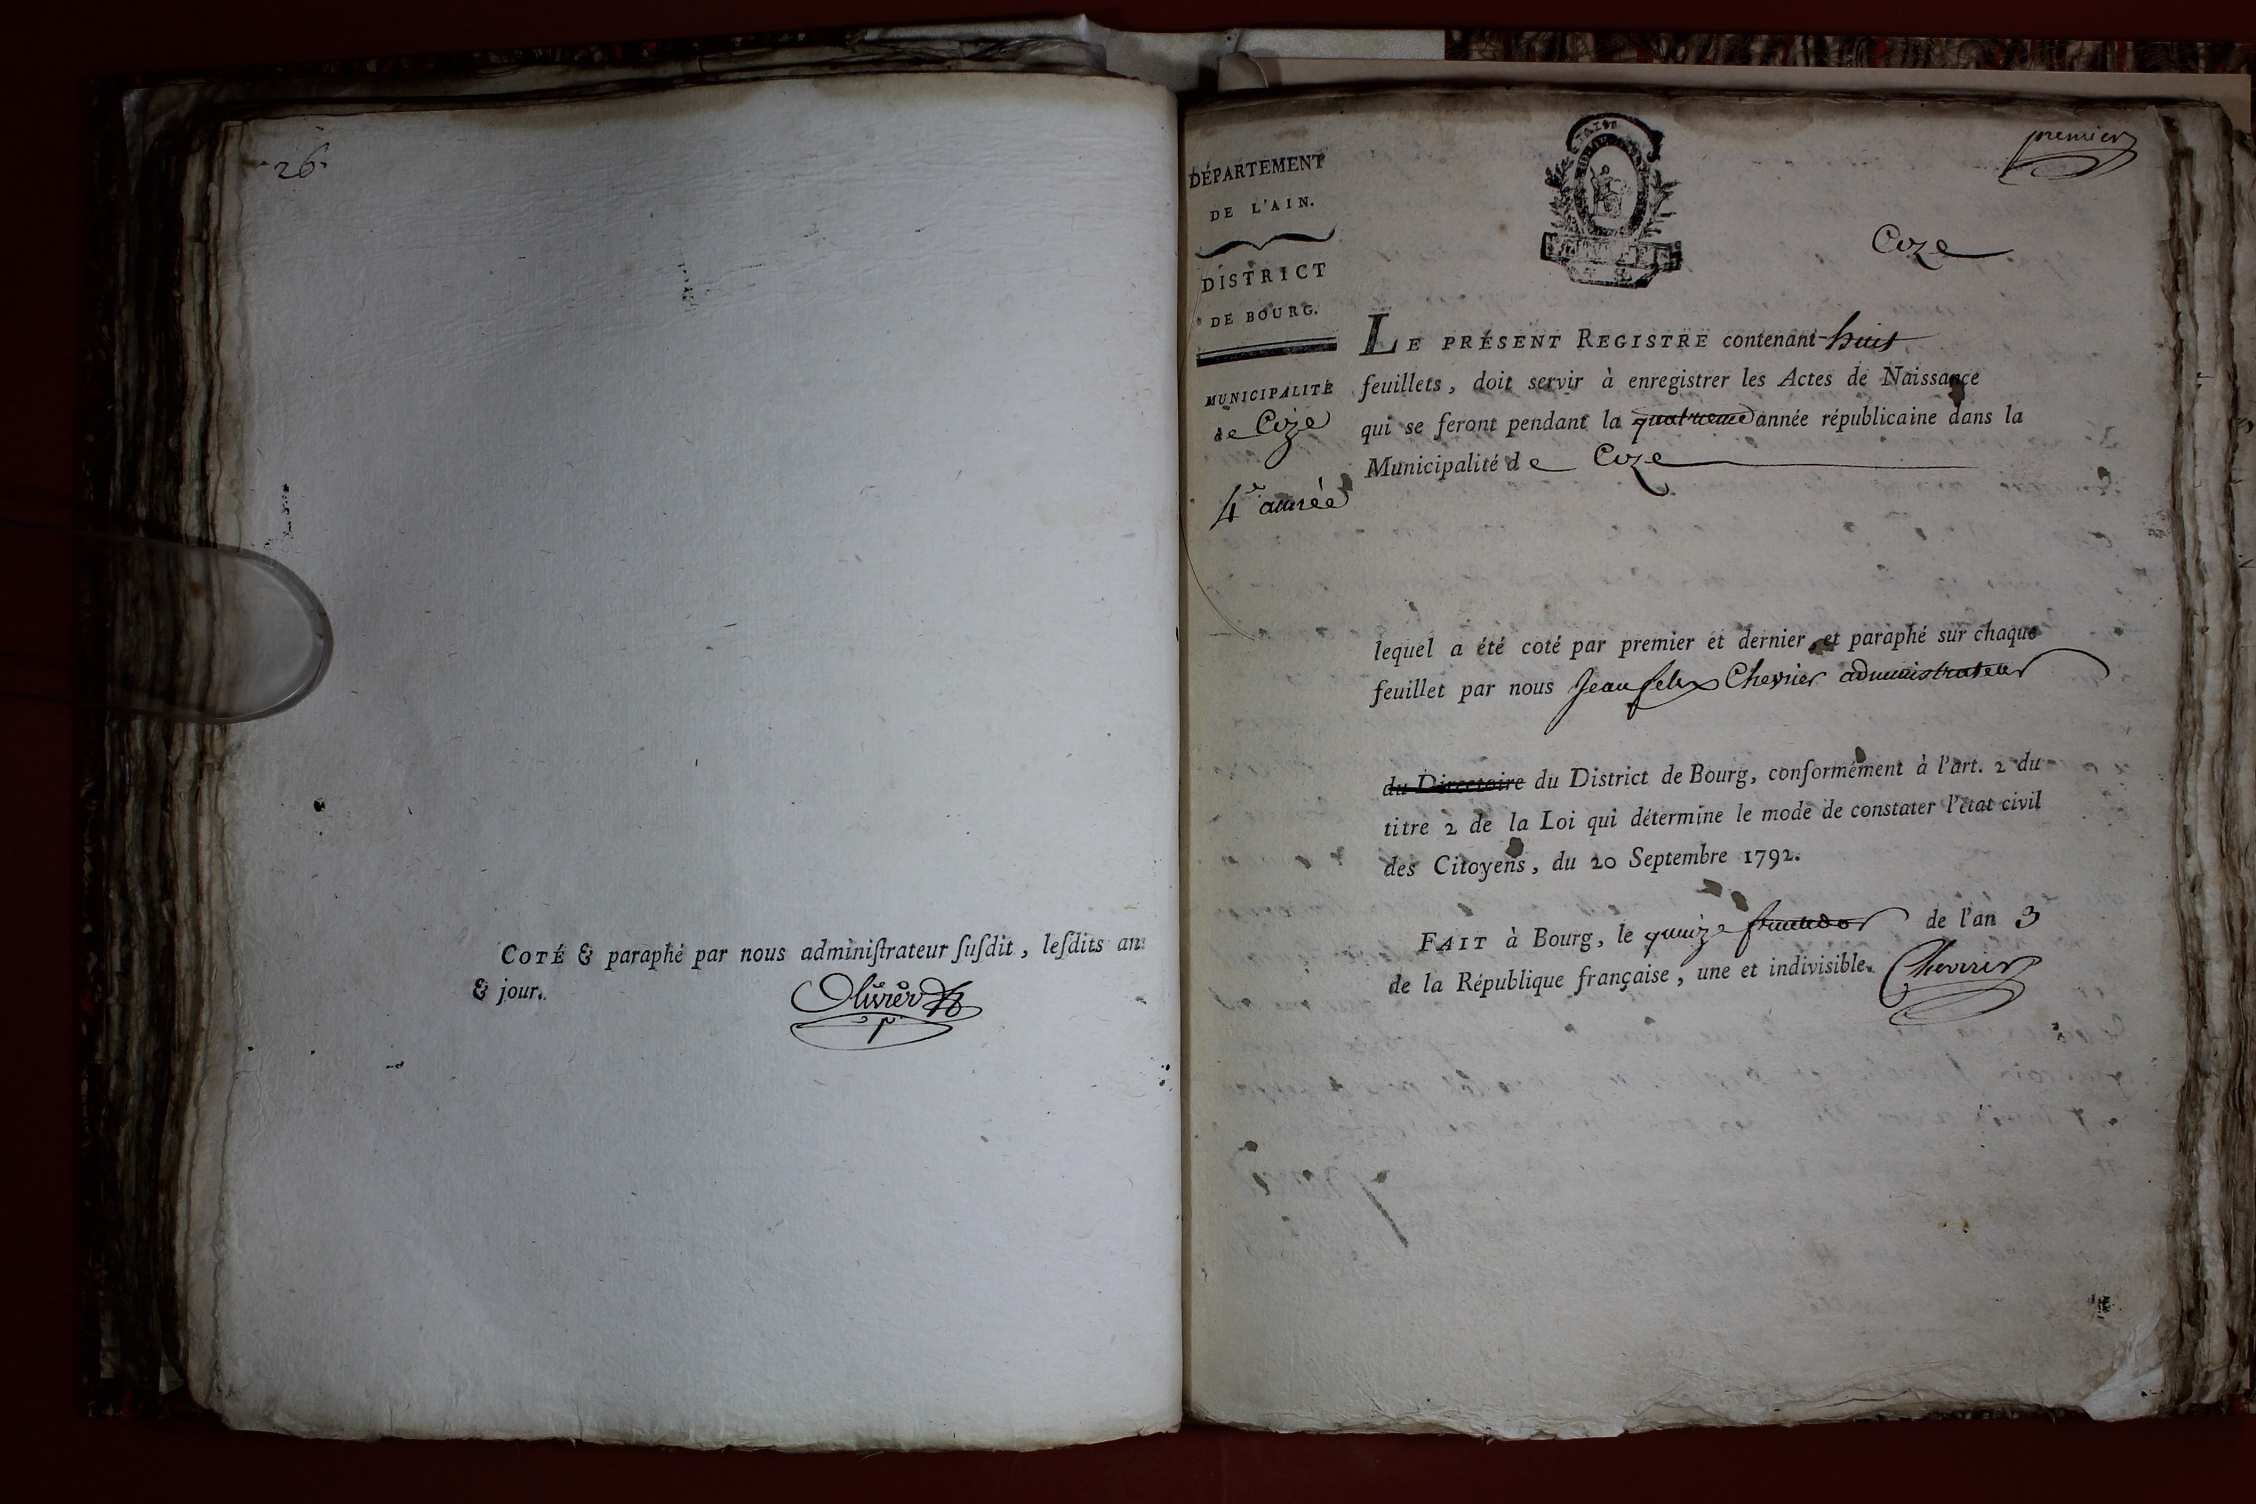 26
COTÉ & paraphé par nous adminiſtrateur ſuſdit, leſdits an
& jour.
Olivier
premier
DÉPARTEMENT
DE L'AIN.
DISTRICT
DE BOURG.
MUNICIPALITÉ
de Cize
4e année
Cize
LE PRÉSENT REGISTRE contenant huit
feuillets, doit servir à enregistrer les Actes de Naissance
qui se feront pendant la quatrieme année républicaine dans la
Municipalité de Cize
lequel a été coté par premier et dernier, et paraphé sur chaque
feuillet par nous Jean felix Chevrier administrateur
du Directoire du District de Bourg, conformément à l'art. 2 du
titre 2 de la Loi qui détermine le mode de constater l'état civil
des Citoyens, du 20 Septembre 1792.
FAIT à Bourg, le quinze fructidor de l'an 3
de la République française, une et indivisible. Chevrier